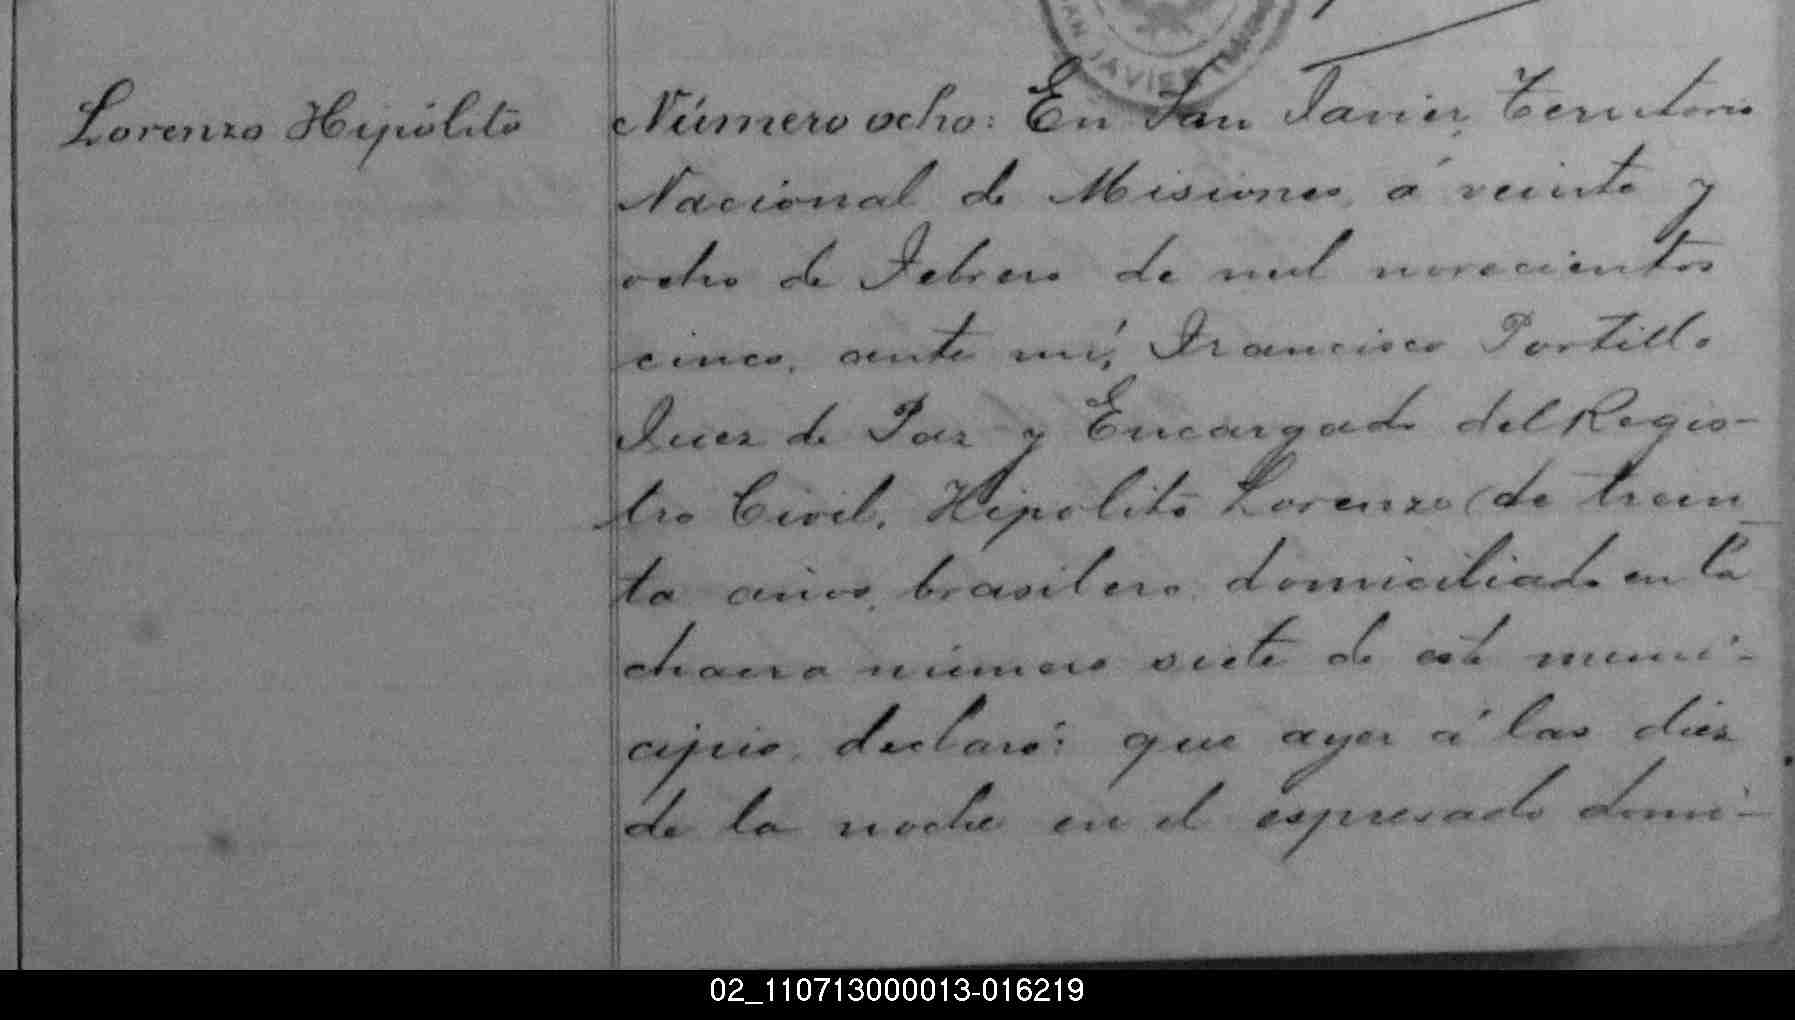 SAN JAVIER
Lorenzo Hipólito
Número ocho: En San Javier, Territorio
Nacional de Misiones, á veinte y
ocho de Febrero de mil novecientos
cinco, ante mí, Francisco Portillo
Juez de Paz y Encargado del Regis-
tro Civil, Hipolito Lorenzo (de trein
ta años, brasilero, domiciliado en la
chacra número siete de este muni-
cipio, declaró: que ayer á las diez
de la noche en el espresado domi-
02_110713000013-016219